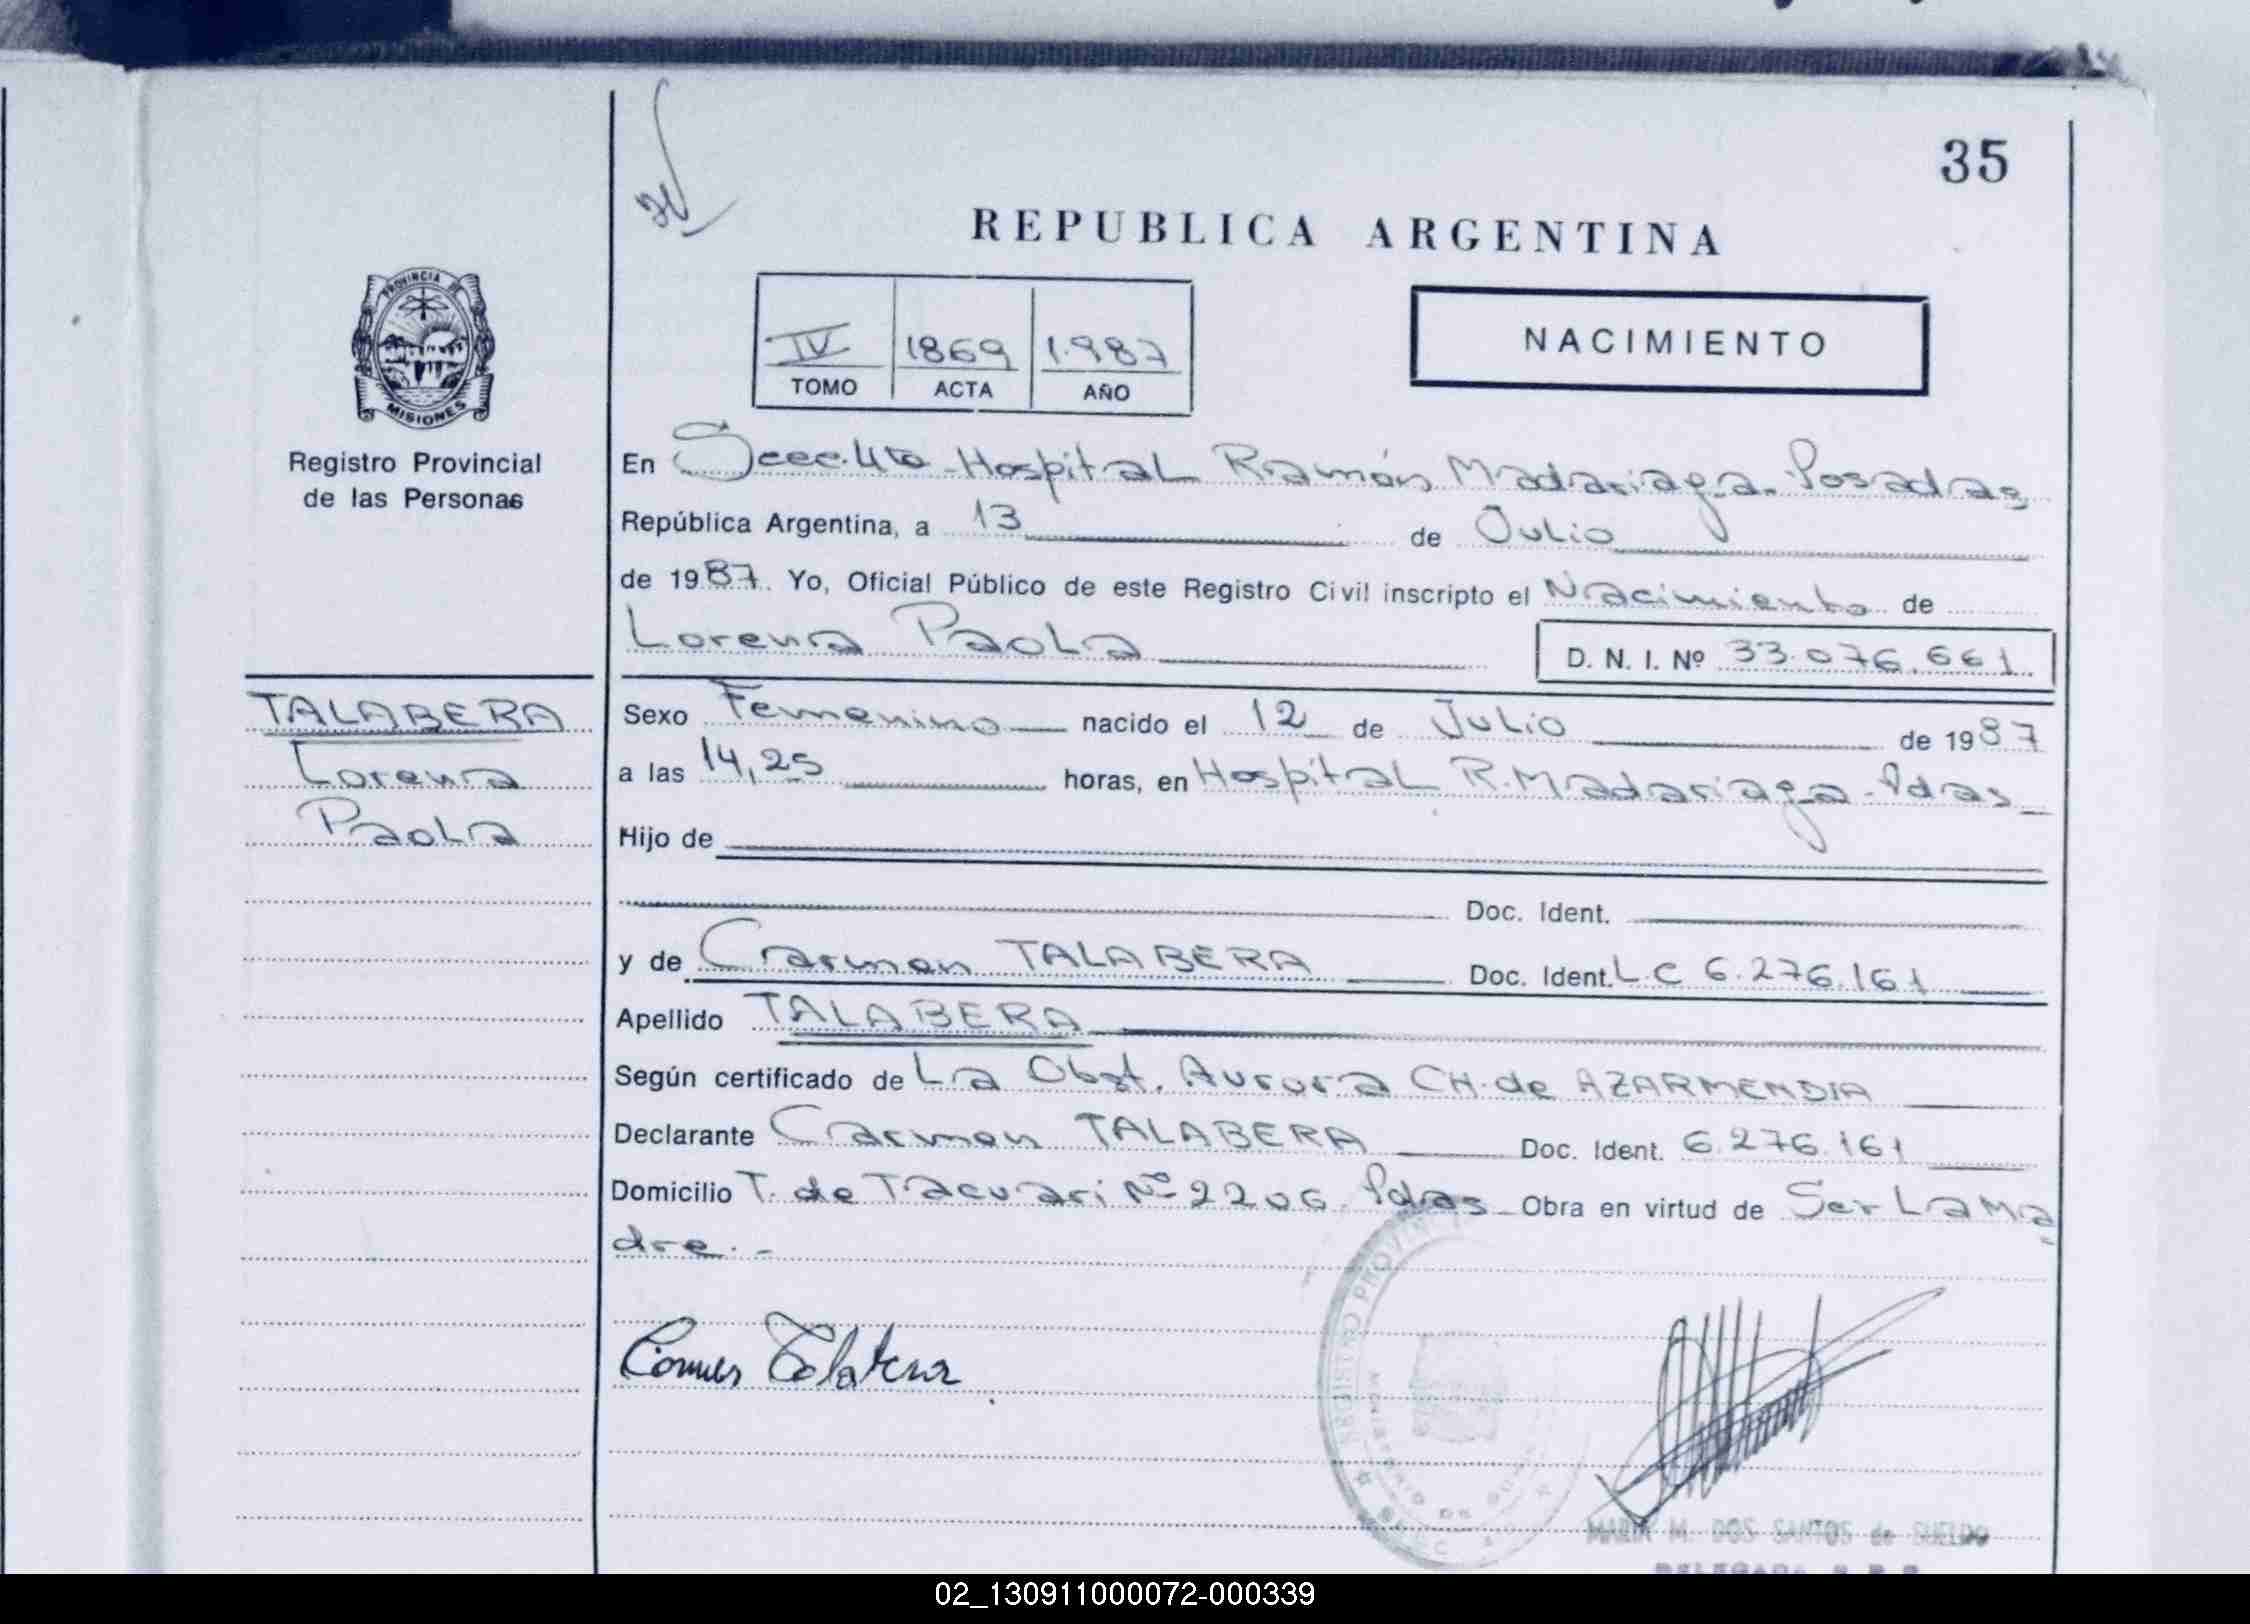 35
REPUBLICA ARGENTINA
PROVINCIA DE
MISIONES
Registro Provincial
de las Personas
IV 1869 1.987
TOMO ACTA AÑO
NACIMIENTO
En Secc. 4ta - Hospital Ramón Madariaga - Posadas
República Argentina, a 13 de Julio
de 1987. Yo, Oficial Público de este Registro Civil inscripto el Nacimiento de
Lorena Paola D. N. I. Nº 33.076.661.
TALABERA
Lorena
Paola
Sexo Femenino nacido el 12 de Julio de 1987
a las 14,25 horas, en Hospital R. Madariaga - Pdas
Hijo de
Doc. Ident.
y de Carmen TALABERA Doc. Ident. L.C 6.276.161
Apellido TALABERA
Según certificado de La Obst. Aurora CH. de AZARMENDIA
Declarante Carmen TALABERA Doc. Ident. 6.276.161
Domicilio T. de Tacuari Nº 2206. Pdas Obra en virtud de Ser La Ma
dre. -
Carmen Talabera
REGISTRO PROVINC
MINISTERIO DE
MARIA M. DOS SANTOS de SUELDO
DELEGADA R. P. P.
02_130911000072-000339